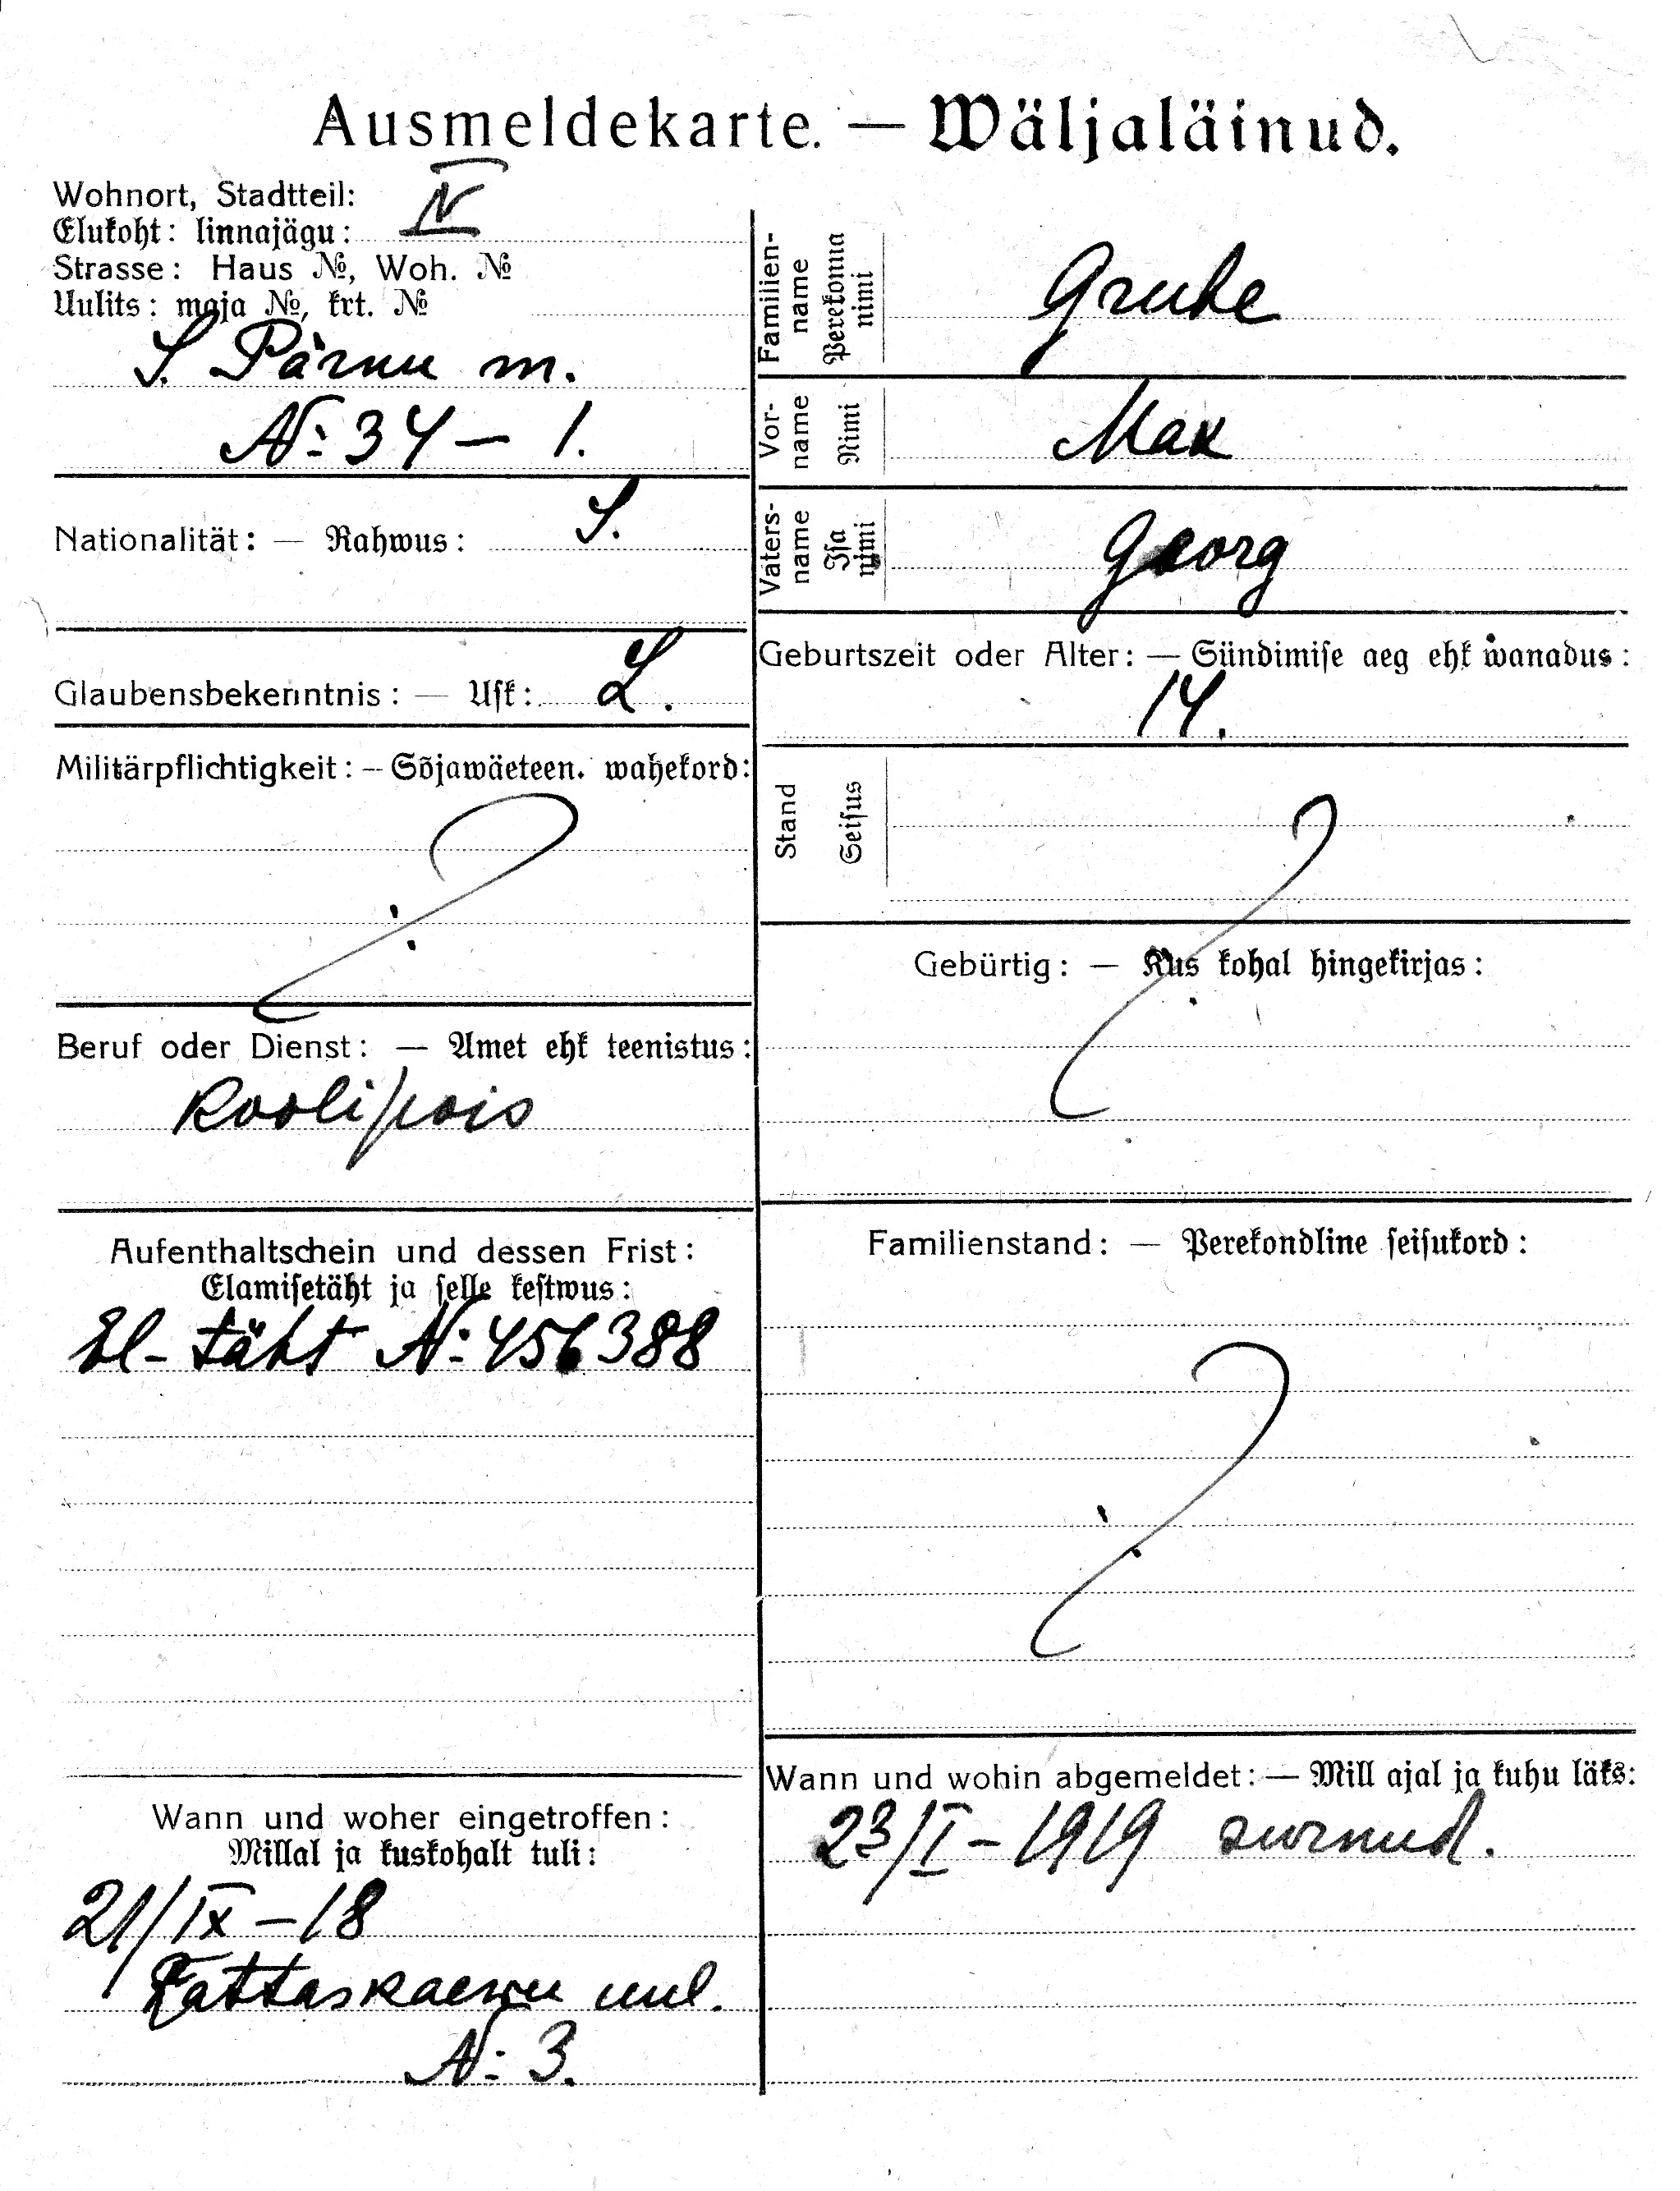 Ausmeldekarte. — Wäljaläinud.
Wohnort, Stadtteil:
Elukoht: linnajägu: IV
Strasse: Haus №, Woh. №
Uulits: maja №, krt. №
S. Pärnu m.
№ 34 – 1.
Nationalität: — Rahwus: S.
Glaubensbekenntnis: — Usk: L.
Militärpflichtigkeit: – Sõjawäeteen. wahekord:
Beruf oder Dienst: — Amet ehk teenistus:
Koolipois
Aufenthaltschein und dessen Frist:
Elamisetäht ja selle kestwus:
El-täht № 456388
Wann und woher eingetroffen:
Millal ja kuskohalt tuli:
21/IX – 18
Rattaskaewu uul.
№ 3.
Familien-
name
Perekonna
nimi
Grube
Vor-
name
Nimi
Max
Vaters-
name
Isa
nimi
Georg
Geburtszeit oder Alter: — Sündimise aeg ehk wanadus:
14.
Stand
Seisus
Gebürtig: — Kus kohal hingekirjas:
Familienstand: — Perekondline seisukord:
Wann und wohin abgemeldet: — Mill ajal ja kuhu läks:
23/I – 1919 surnud.